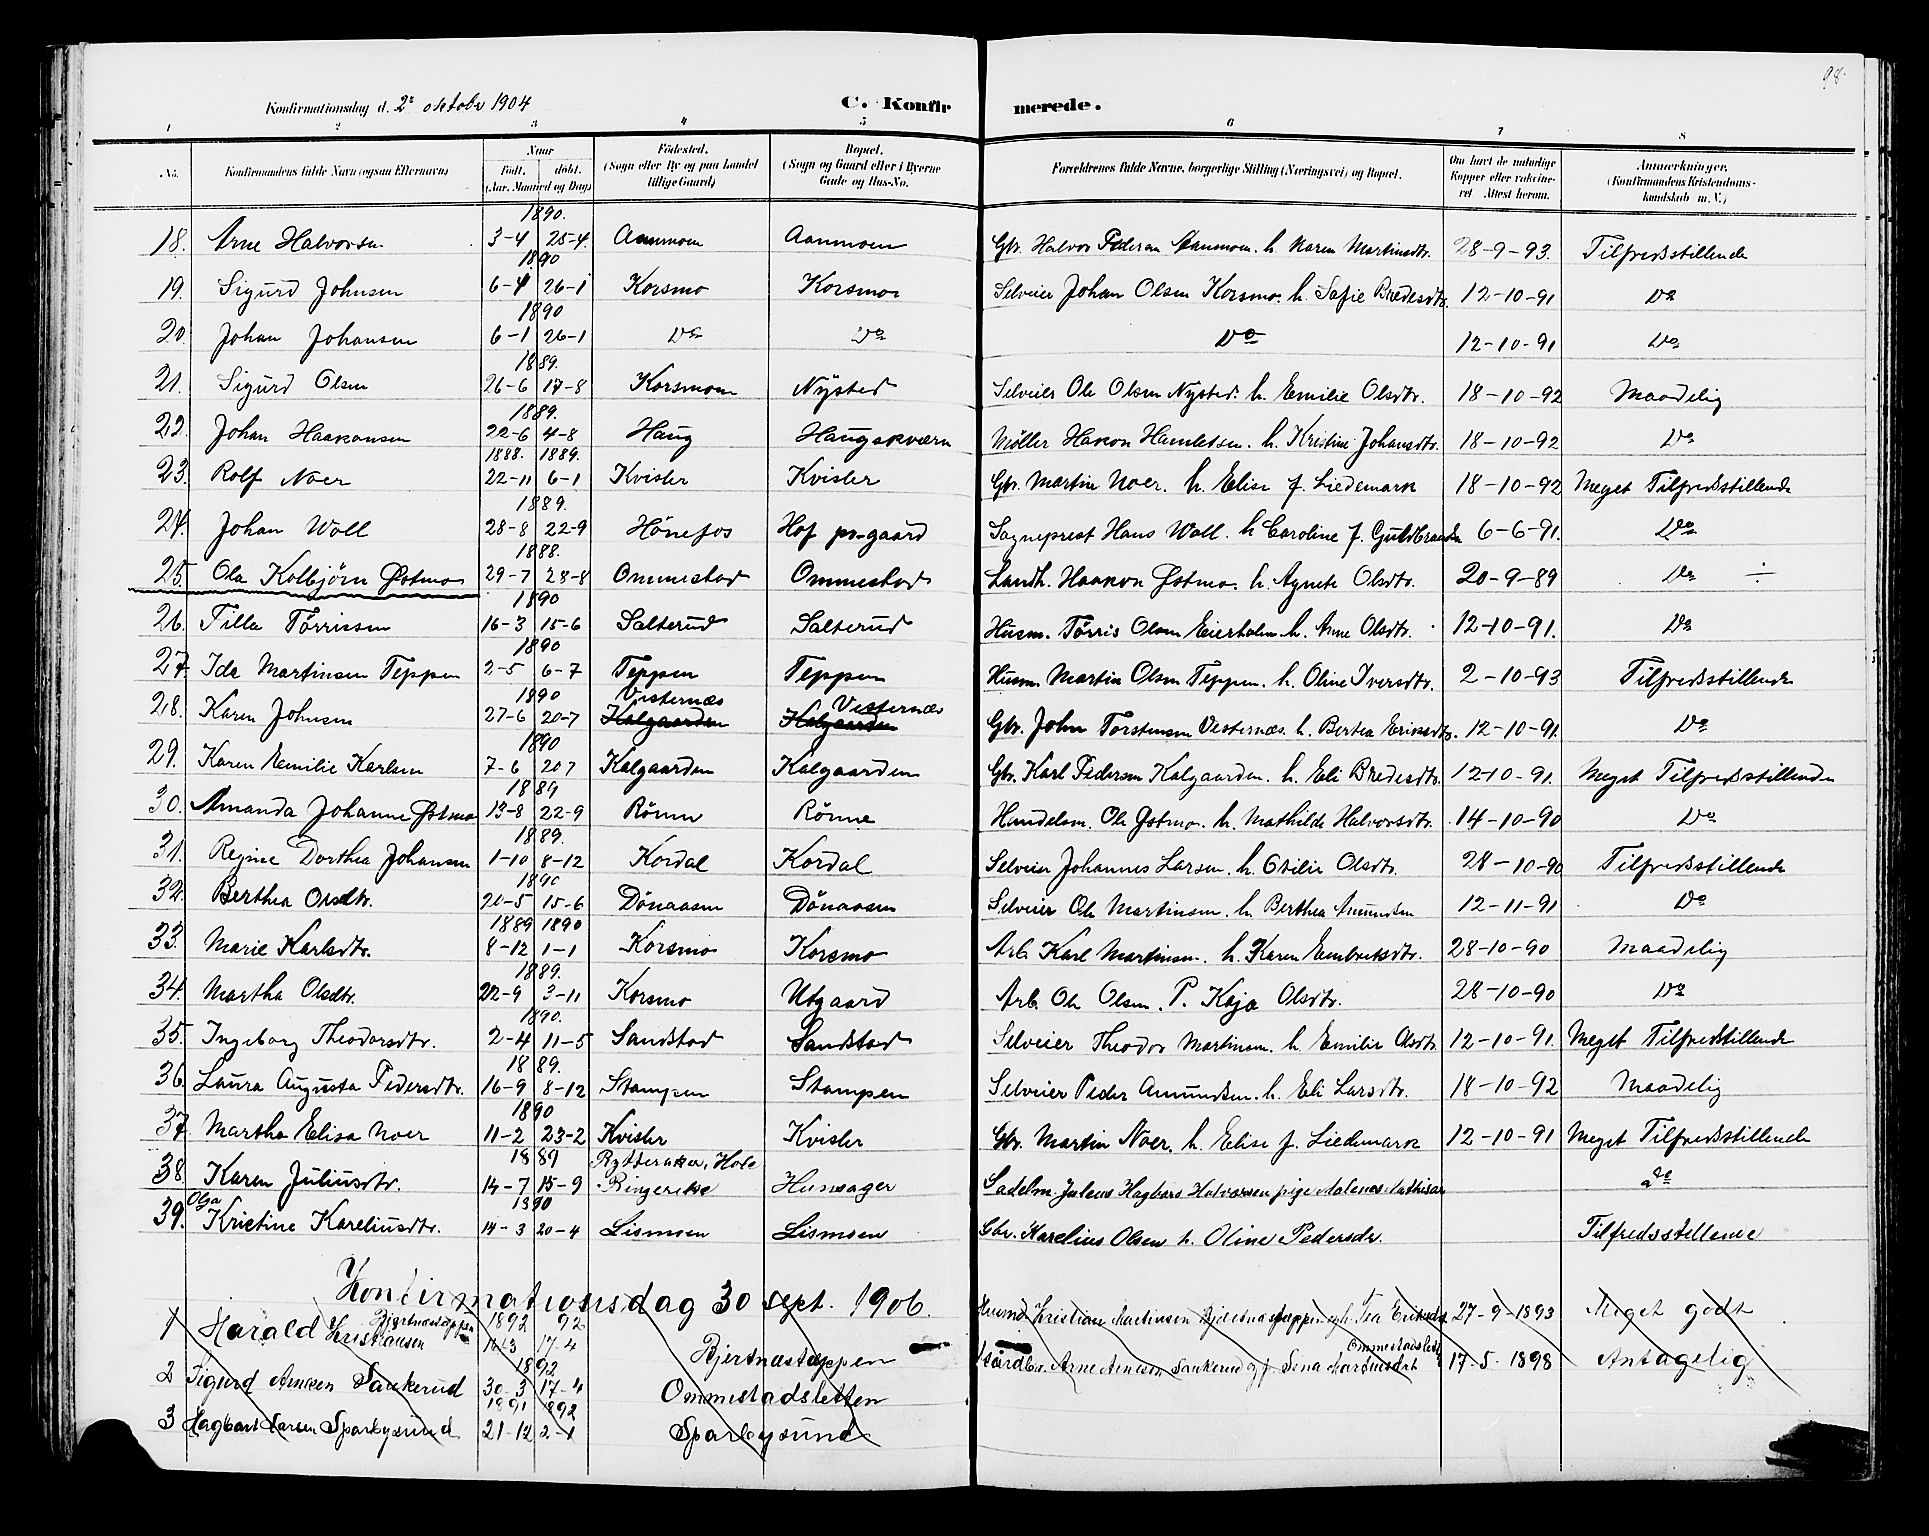 98.
Konfirmationsdag d. 2den oktober 1904 C. Konfirmerede.
1 2 3 4 5 6 7 8
No. Konfirmandens fulde Navn (ogsaa Efternavn) Naar Født. døbt. (Aar, Maaned og Dag) Fødested. (Sogn eller By og paa Landet tillige Gaard) Bopæl. (Sogn og Gaard eller i Byerne Gade og Hus-No. Forældrenes fulde Navne, borgerlige Stilling (Næringsvei) og Bopæl. Om havt de naturlige Kopper eller vaccineret. Attest herom. Anmærkninger. (Konfirmandens Kristendomskundskab m. V.)
1890.
18. Arne Halvorsen 3-4 25-4 Aanmoen Aanmoen Gbr. Halvor Pedersen Aanmoen. h. Karen Martinsdtr. 28-9-93. Tilfredsstillende
1890
19. Sigurd Johnsen 6-4 26-1 Korsmo Korsmo Selveier Johan Olsen Korsmo. h. Sofie Bredesdtr. 12-10-91 Do
1890
20. Johan Johansen 6-1 26-1 Do Do Do 12-10-91 Do
1889.
21. Sigurd Olsen 26-6 17-8 Korsmoen Nysted Selveier Ole Olsen Nysted. h. Emilie Olsdtr. 18-10-92 Maadelig
1889.
22. Johan Haakonsen 22-6 4-8 Haug Haugskværn Møller Hakon Hamletsen. h. Kristine Johansdtr. 18-10-92 Do
1888. 1889.
23. Rolf Noer 22-11 6-1 Kvisler Kvisler Gbr. Martin Noer. h. Elise f. Liedemark 18-10-92 Meget Tilfredsstillende
1889.
24. Johan Woll 28-8 22-9 Hönefos Hof pr-gaard Sogneprest Hans Woll. h Caroline f. Guldbrandsen 6-6-91. Do
1888.
25. Ola Kolbjörn Østmo 29-7 28-8 Ommestad Ommestad Landh. Haakon Østmo. h. Agnete Olsdtr. 20-9-89 Do ÷
1890
26. Tilla Törrissen 16-3 15-6 Salterud Salterud Husm. Törris Olsen Eierholen h. Anne Olsdtr. 12-10-91. Do
1890
27. Ida Martinsen Teppen 2-5 6-7 Teppen Teppen Husm. Martin Olsen Teppen. h. Oline Iversdtr. 2-10-93 Tilfredsstillende
1890 Vesternæs Vesternæs
28. Karen Johnsen 27-6 20-7 Kalgaarden Kalgaarden Gbr. John Torstensen Vesternæs. h. Berthea Eriksdtr. 12-10-91. Do
1890
29. Karen Emilie Karlsen 7-6 20 7 Kalgaarden Kalgaarden Gbr. Karl Pedersen Kalgaarden. h. Eli Bredesdtr. 12-10-91. Meget Tilfredsstillende
1889
30. Amanda Johanne Østmo 13-8 22-9 Rönne Rönne Handelsm. Ole Østmo. h. Mathilde Halvorsdtr. 14-10-90 Do
1889.
31. Regine Dorthea Johansen 1-10 8-12 Kordal Kordal Selveier Johannes Larsen. h. Otilie Olsdtr. 28-10-90 Tilfredsstillende
1890
32. Berthea Olsdtr. 20-5 15-6 Dönaasen Dönaasen Selveier Ole Martinsen. h. Berthea Amundsen 12-11-91 Do
1889 1890
33. Marie Karlsdtr. 8-12 1-1 Korsmo Korsmo Arb. Karl Martinsen. h. Karen Embretsdtr. 28-10-90 Maadelig
1889.
34. Martha Olsdtr. 22-9 3-11 Korsmo Utgaard Arb. Ole Olsen. P. Kaja Olsdtr. 28-10-90 Do
1890.
35. Ingeborg Theodorsdtr. 2-4 11-5 Sandstad Sandstad Selveier Theodor Martinsen. h Emilie Olsdtr. 12-10-91 Meget Tilfredsstillende
1889.
36. Laura Augusta Pedersdtr. 16-9 8-12 Stampen Stampen Selveier Peder Amundsen. h. Eli Larsdtr. 18-10-92 Maadelig
1890
37. Martha Elisa Noer 11-2 23-2 Kvisler Kvisler Gbr. Martin Noer. h. Elise f. Liedemark 12-10-91 Meget Tilfredsstillende
1889 Rytteraker, Hole
38. Karen Juliusdtr. 14-7 15-9 Ringerike Hunsager Sadelm. Julius Hagbart Halvorsen pige Malene Mathisen do
Olga 1890
39. Kristine Kareliusdtr. 14-3 20-4 Lismoen Lismoen Gbr. Karelius Olsen h. Oline Pedersdr. Tilfredsstillende
Konfirmationsdag 30 sept. 1906.
Bjertnæstæppen 1892 92
1 Harald Kristiansen 10-3 17-4 Bjertnæstæppen Husmd. Kristian Martinsen Bjertnæstæppen og h. Tea Eriksdtr 27-9-1893 Meget godt
1892 Ommestadslett
2 Sigurd Arnesen Sankerud 30-3 17-4 Ommestadsletten Gårdbr. Arne Arnesen Sankerud og f. Sina Martinsdat 17-5-1898 Antagelig
1891 1892
3 Hagbart Larsen Sparbysund 21-12 2-1 Sparbysund